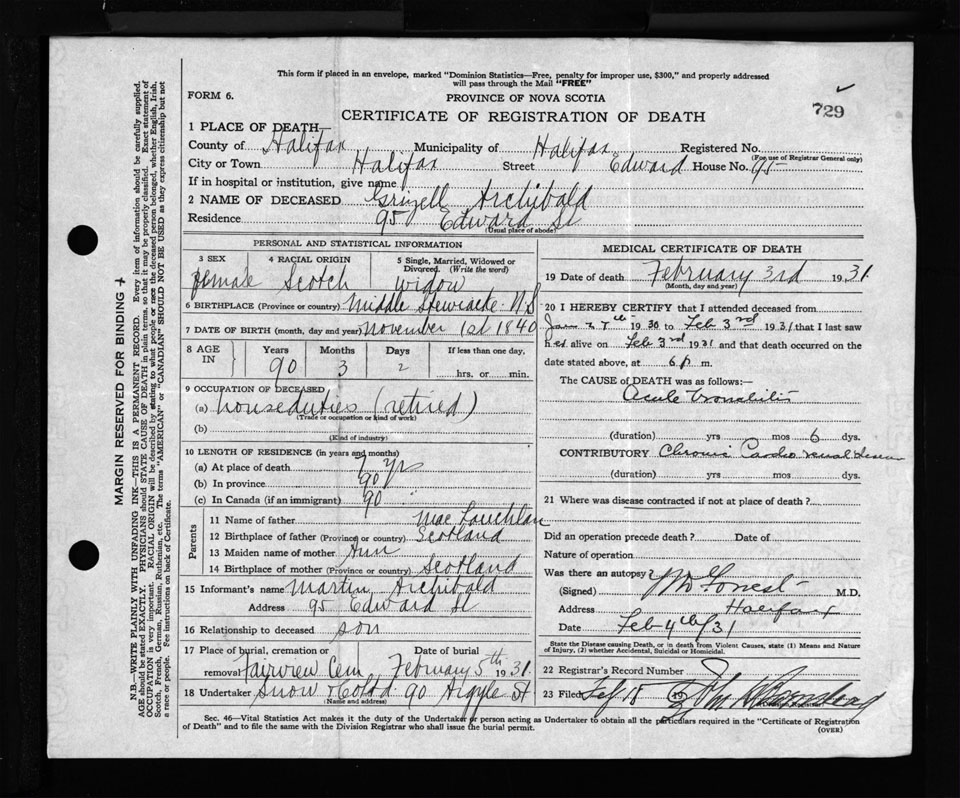 This form if placed in an envelope, marked "Dominion Statistics—Free, penalty for improper use, $300," and properly addressed
will pass through the Mail "FREE"
FORM 6.
PROVINCE OF NOVA SCOTIA
729
CERTIFICATE OF REGISTRATION OF DEATH
1 PLACE OF DEATH—
County of Halifax Municipality of Halifax Registered No.
(For use of Registrar General only)
City or Town Halifax Street Edward House No. 95
If in hospital or institution, give name
2 NAME OF DECEASED Grizell Archibald
Residence 95 Edward St
(Usual place of abode)
PERSONAL AND STATISTICAL INFORMATION
3 SEX 4 RACIAL ORIGIN 5 Single, Married, Widowed or Divorced. (Write the word)
female Scotch widow
6 BIRTHPLACE (Province or country) Middle Stewiacke N S
7 DATE OF BIRTH (month, day and year) November 1st 1840
8 AGE IN Years Months Days If less than one day,
90 3 2 hrs. or min.
9 OCCUPATION OF DECEASED
(a) houseduties (retired)
(Trade or occupation or kind of work)
(b)
(Kind of industry)
10 LENGTH OF RESIDENCE (in years and months)
(a) At place of death yrs
(b) In province 90
(c) In Canada (if an immigrant) 90
Parents
11 Name of father Mac Lauchlan
12 Birthplace of father (Province or country) Scotland
13 Maiden name of mother Ann
14 Birthplace of mother (Province or country) Scotland
15 Informant's name Martin Archibald
Address 95 Edward St
16 Relationship to deceased son
17 Place of burial, cremation or removal Date of burial
Fairview Cem February 5th 1931
18 Undertaker Snow & Co Ltd. 90 Argyle St
(Name and address)
MEDICAL CERTIFICATE OF DEATH
19 Date of death February 3rd 1931
(Month, day and year)
20 I HEREBY CERTIFY that I attended deceased from
Jan 1930 to Feb 3rd 1931 that I last saw
her alive on Feb 3rd 1931 and that death occurred on the
date stated above, at 6 p m.
The CAUSE OF DEATH was as follows:—
Acute Bronchitis
(duration) yrs mos 6 dys.
CONTRIBUTORY Chronic Cardio renal disease
(duration) yrs mos dys.
21 Where was disease contracted if not at place of death?
Did an operation precede death? Date of
Nature of operation
Was there an autopsy?
(Signed) M.D.
Address Halifax
Date Feb 4th/31
State the Disease causing Death, or in death from Violent Causes, state (1) Means and Nature of Injury, (2) whether Accidental, Suicidal or Homicidal.
22 Registrar's Record Number
23 Filed Feb 18 19
Sec. 46—Vital Statistics Act makes it the duty of the Undertaker or person acting as Undertaker to obtain all the particulars required in the "Certificate of Registration
of Death" and to file the same with the Division Registrar who shall issue the burial permit.
(OVER)
MARGIN RESERVED FOR BINDING
N.B.—WRITE PLAINLY WITH UNFADING INK—THIS IS A PERMANENT RECORD. Every item of information should be carefully supplied.
AGE should be stated EXACTLY. PHYSICIANS should STATE CAUSE OF DEATH in plain terms, so that it may be properly classified. Exact statement of
OCCUPATION is very important. RACIAL ORIGIN will be described by stating to what people or race the deceased person belonged, whether English, Irish,
Scotch, French, German, Russian, Ruthenian, etc. The terms "AMERICAN" or "CANADIAN" SHOULD NOT BE USED as they express citizenship but not
a race or people. See instructions on back of Certificate.